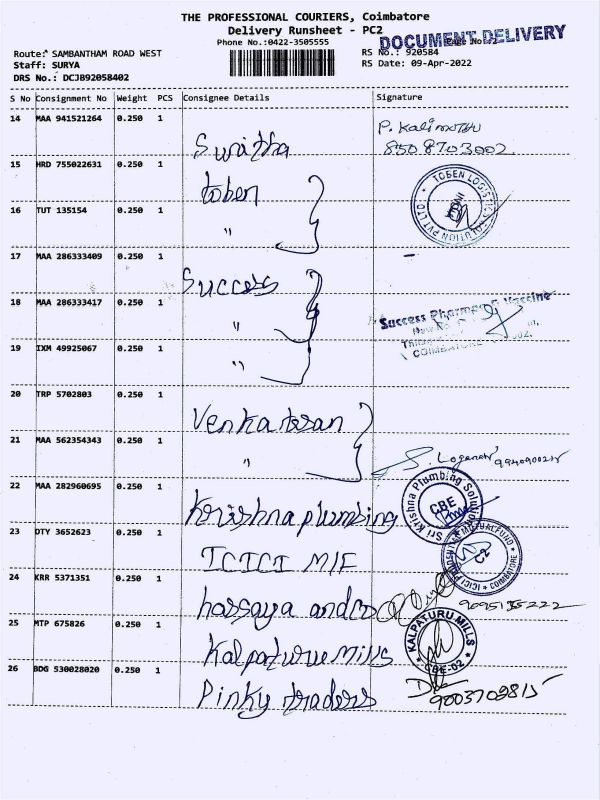 THE PROFESSIONAL COURIERS, Coimbatore
Delivery Runsheet - PC2
Phone No.:0422-3505555
DOCUMENT DELIVERY
Route: SAMBANTHAM ROAD WEST
RS No.: 920584
Staff: SURYA
RS Date: 09-Apr-2022
DRS No.: DCJB92058402
S No Consignment No Weight PCS Consignee Details Signature
14 MAA 941521264 0.250 1
Sunitha
8508703002
15 HRD 755022631 0.250 1
toben
TOBEN LOGISTICS SOLUTION PVT LTD
16 TUT 135154 0.250 1
"
17 MAA 286333409 0.250 1
Success
18 MAA 286333417 0.250 1
"
Success Pharma Vaccine
COIMBATORE
19 IXM 49925067 0.250 1
"
20 TRP 5702803 0.250 1
Venkatesan
21 MAA 562354343 0.250 1
"
22 MAA 282960695 0.250 1
Krishna plumbing
Sri Krishna Plumbing Solution
CBE
23 DTY 3652623 0.250 1
ICICI M/F
ICICI PRUDENTIAL MUTUAL FUND
C2
COIMBATORE
24 KRR 5371351 0.250 1
hassaya andco
25 MTP 675826 0.250 1
Kalpaturue Mills
KALPATURU MILLS
CBE-02
26 BDG 530028020 0.250 1
Pinky traders
9003709815